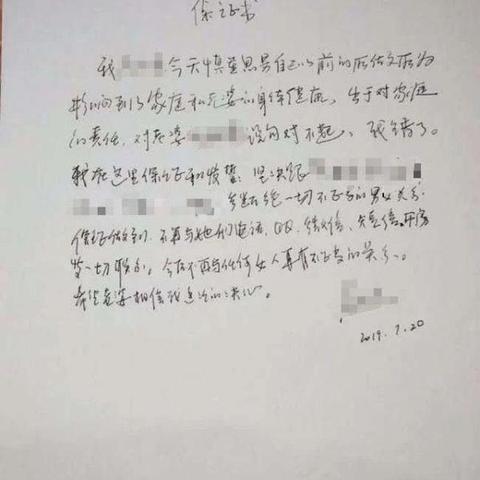 保证书
我今天慎重思昜自己以前的所作所为
影响到了家庭和老婆的身体健康，出于对家庭
的责任，对老婆说句对不起，我错了。
我在这里保证和发誓：坚决跟
断绝一切不正当的男女关系.
保证做到，不再与她们电话、QQ、微信、短信、开房
等一切联系。今后不再与任何女人再有不正当的关系。
希望老婆相信我这次的决心。
2019.7.20